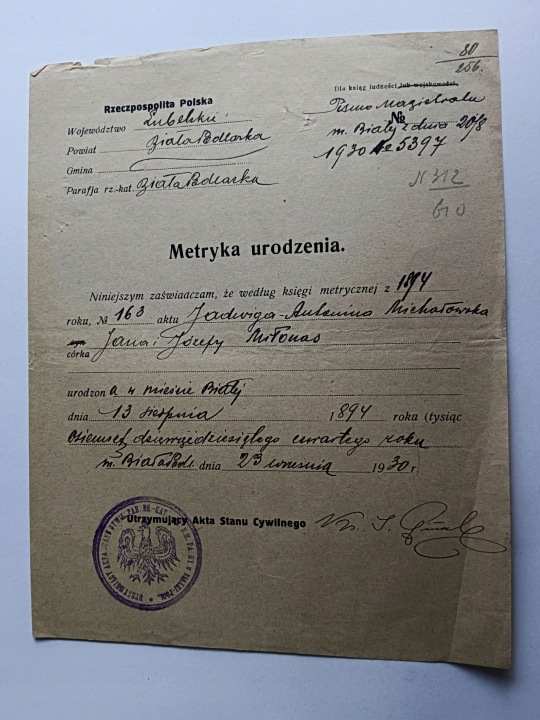 80
256.
Dla ksiąg ludności lub wojskowości.
Rzeczpospolita Polska
Pismo Magistratu
Województwo Lubelskie
№
m. Białej z dnia 20/8
Powiat Biała Podlaska
1930 № 5397
Gmina
Parafja rz.-kat. Biała Podlaska
N 312
Metryka urodzenia.
Niniejszym zaświadczam, że według księgi metrycznej z 1894
roku, № 163 aktu Jadwiga-Antonina Michałowska
syn
córka Jana i Józefy Miłonas
urodzona w mieście Białej
dnia 13 sierpnia 1894 roku (tysiąc
osiemset dziewięćdziesiątego czwartego roku
m. Biała Podl. dnia 23 września 1930 r.
Utrzymujący Akta Stanu Cywilnego Ks. S.